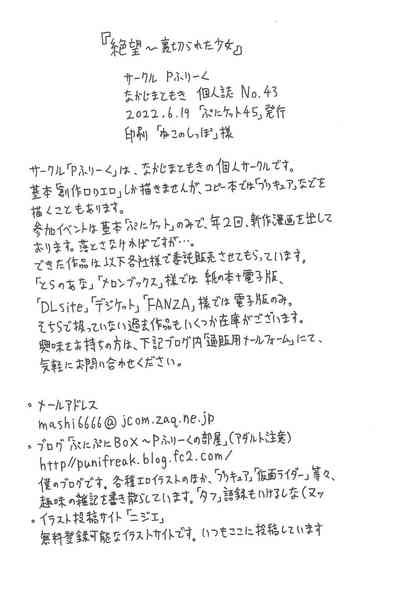 『絶望～裏切られた少女』
サークル Pふりーく
なかじまともき 個人誌 No.43
2022.6.19「ぷにケット45」発行
印刷「ねこのしっぽ」様
サークル「Pふりーく」は、なかじまともきの個人サークルです。
基本「創作ロリエロ」しか描きませんが、コピー本では「プリキュア」などを
描くこともあります。
参加イベントは基本「ぷにケット」のみで、年2回、新作漫画を出して
おります。落とさなければですが…。
できた作品は以下各社様で委託販売させてもらっています。
「とらのあな」「メロンブックス」様では 紙の本+電子版、
「DLsite」「デジケット」「FANZA」様では 電子版のみ。
そちらで扱っていない過去作品もいくつか在庫がございます。
興味をお持ちの方は、下記ブログ内「通販用メールフォーム」にて、
気軽にお問い合わせください。
。メールアドレス
mashi6666@jcom.zaq.ne.jp
。ブログ「ぷにぷにBOX～Pふりーくの部屋」(アダルト注意)
http//punifreak.blog.fc2.com/
僕のブログです。各種エロイラストのほか、「プリキュア」「仮面ライダー」等々、
趣味の雑記を書き散らしています。「タフ」語録もいけるしな(ヌッ
。イラスト投稿サイト「ニジエ」
無料登録可能なイラストサイトです。いつもここに投稿しています